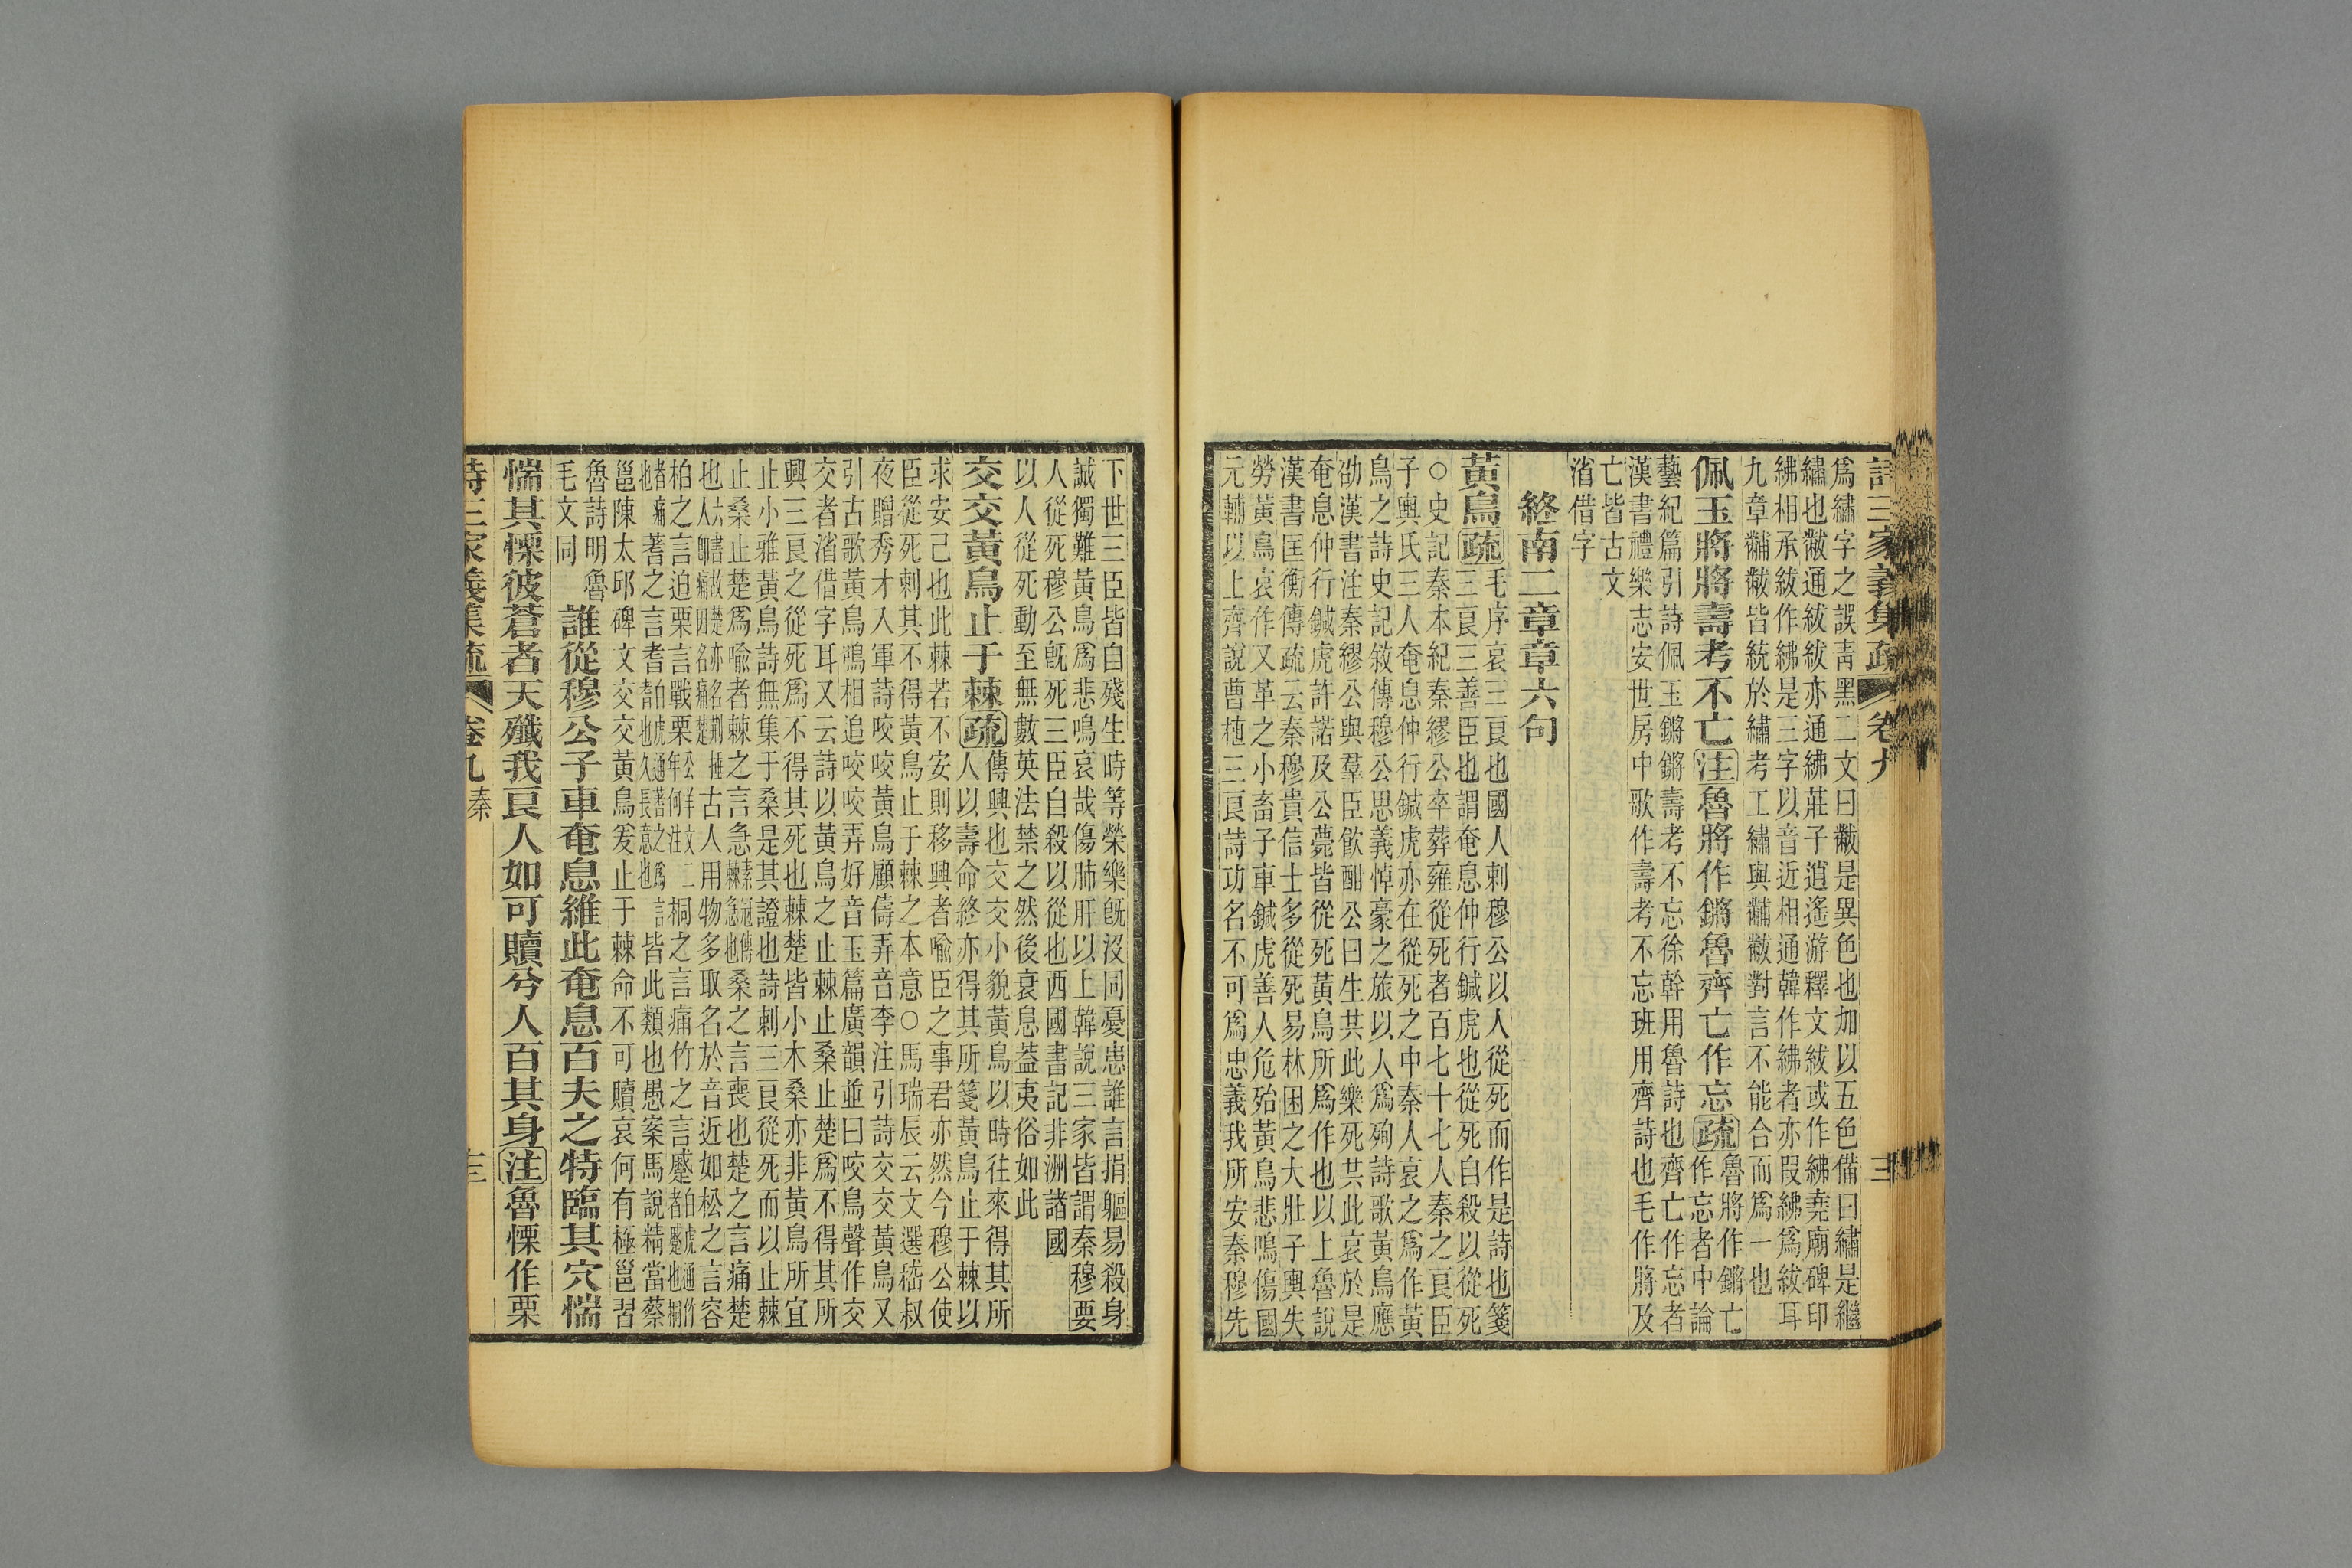 詩三家義集疏 卷九
爲繡字之誤青黑二文曰黻是異色也加以五色備曰繡是繼
繡也黻通紱紱亦通紼莊子逍遙游釋文紱或作紼堯廟碑印
紼相承紱作紼是三字以音近相通韓作紼者亦叚紼爲紱耳
九章黼黻皆統於繡考工繡與黼黻對言不能合而爲一也
佩玉將將壽考不亡注魯將作鏘魯齊亡作忘疏魯將作鏘亡
作忘者中論
藝紀篇引詩佩玉鏘鏘壽考不忘徐幹用魯詩也齊亡作忘者
漢書禮樂志安世房中歌作壽考不忘班用齊詩也毛作將及
亡皆古文
渻借字
終南二章章六句
黃鳥疏毛序哀三良也國人刺穆公以人從死而作是詩也箋
三良三善臣也謂奄息仲行鍼虎也從死自殺以從死
○史記秦本紀秦繆公卒葬雍從死者百七十七人秦之良臣
子輿氏三人奄息仲行鍼虎亦在從死之中秦人哀之爲作黃
鳥之詩史記敘傳穆公思義悼豪之旅以人爲殉詩歌黃鳥應
劭漢書注秦繆公與羣臣飮酣公曰生共此樂死共此哀於是
奄息仲行鍼虎許諾及公薨皆從死黃鳥所爲作也以上魯說
漢書匡衡傳疏云秦穆貴信士多從死易林困之大壯子輿失
勞黃鳥哀作又革之小畜子車鍼虎善人危殆黃鳥悲鳴傷國
元輔以上齊說曹植三良詩功名不可爲忠義我所安秦穆先
下世三臣皆自殘生時等榮樂旣沒同憂患誰言捐軀易殺身
誠獨難黃鳥爲悲鳴哀哉傷肺肝以上韓說三家皆謂秦穆要
人從死穆公旣死三臣自殺以從也西國書記非洲諸國
以人從死動至無數英法禁之然後衰息葢夷俗如此
交交黃鳥止于棘疏傳興也交交小貌黃鳥以時往來得其所
人以壽命終亦得其所箋黃鳥止于棘以
求安己也此棘若不安則移興者喩臣之事君亦然今穆公使
臣從死刺其不得黃鳥止于棘之本意○馬瑞辰云文選嵇叔
夜贈秀才入軍詩咬咬黃鳥顧儔弄音李注引詩交交黃鳥又
引古歌黃鳥鳴相追咬咬弄好音玉篇廣韻並曰咬鳥聲作交
交者渻借字耳又云詩以黃鳥之止棘止桑止楚爲不得其所
興三良之從死爲不得其死也棘楚皆小木桑亦非黃鳥所宜
止小雅黃鳥詩無集于桑是其證也詩刺三良從死而以止棘
止桑止楚爲喩者棘之言急素冠傳棘急也桑之言喪也楚之言痛楚
也六書故楚亦名荆捶人卽痛因名痛楚古人用物多取名於音近如松之言容
柏之言迫栗言戰栗公羊文二年何注桐之言痛竹之言蹙白虎通竹者蹙也桐
者痛也蓍之言耆白虎通蓍之爲言耆也久長意也皆此類也愚案馬說精當蔡
邕陳太邱碑文交交黃鳥爰止于棘命不可贖哀何有極邕習
魯詩明魯
毛文同
誰從穆公子車奄息維此奄息百夫之特臨其穴惴
惴其慄彼蒼者天殲我良人如可贖兮人百其身注魯慄作栗
詩三家義集疏 卷九 秦